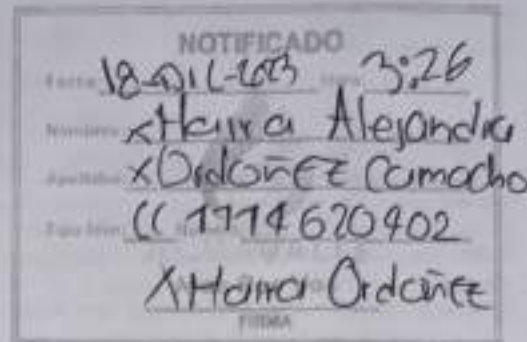 NOTIFICADO
Fecha 18-DIC-2023 Hora 3:26
Nombre x Haira Alejandra
Apellido x Ordoñez Camacho
CC 1114620902
x Haira Ordoñez
FIRMA